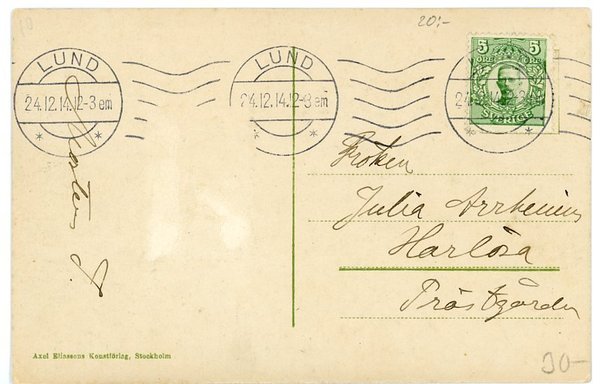 20:-
LUND
24.12.14.12-3 em
LUND
24.12.14.12-3 em
5 5
SVERIGE
24
Fröken
Julia Arrhenius
Harlösa
Prästgården
Axel Eliassons Konstförlag, Stockholm
30-